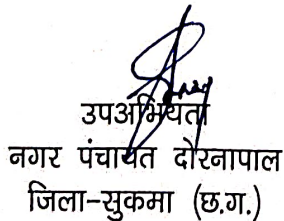 उपअभियंता
नगर पंचायत दोरनापाल
जिला-सुकमा (छ.ग.)